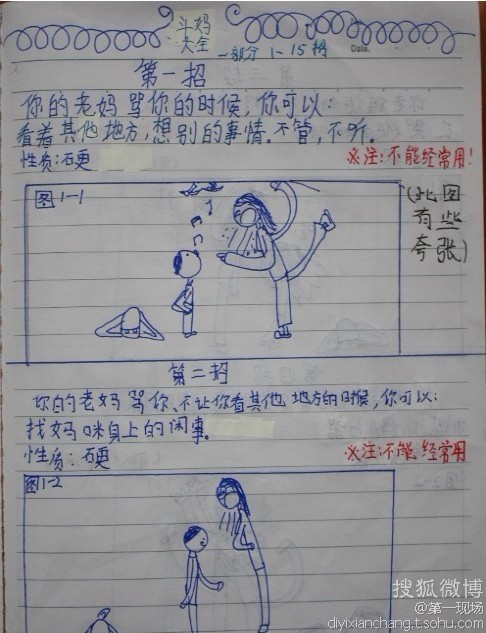 斗妈
大全
一部分 1-15招
Date.
第一招
你的老妈骂你的时候，你可以：
看着其他地方，想别的事情。不管，不听。
性质：石更
※注：不能经常用！
图1-1
(此图
有些
夸张)
第二招
你的老妈骂你、不让你看其他地方的时候，你可以：
找妈咪身上的闲事。
性质：石更
※注：不能经常用
图1-2
搜狐微博
@第一现场
diyixianchang.t.sohu.com